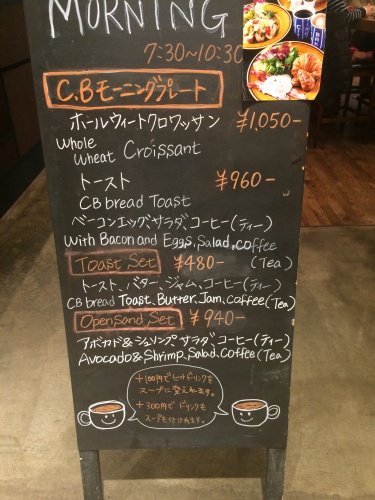 MORNING
7:30~10:30
C.Bモーニングプレート
ホールウィートクロワッサン ¥1,050-
Whole Wheat Croissant
トースト ¥960-
CB bread Toast
ベーコンエッグ、サラダ、コーヒー(ティー)
With Bacon and Eggs, Salad, coffee (Tea)
Toast Set ¥480-
トースト、バター、ジャム、コーヒー(ティー)
CB bread Toast, Butter, Jam, coffee (Tea)
OpenSand Set ¥940-
アボカド&シュリンプ、サラダ、コーヒー(ティー)
Avocado & Shrimp, Salad, coffee (Tea)
+100円でセットドリンクを
スープに変えれます。
+300円でドリンクも
スープも付けれます。